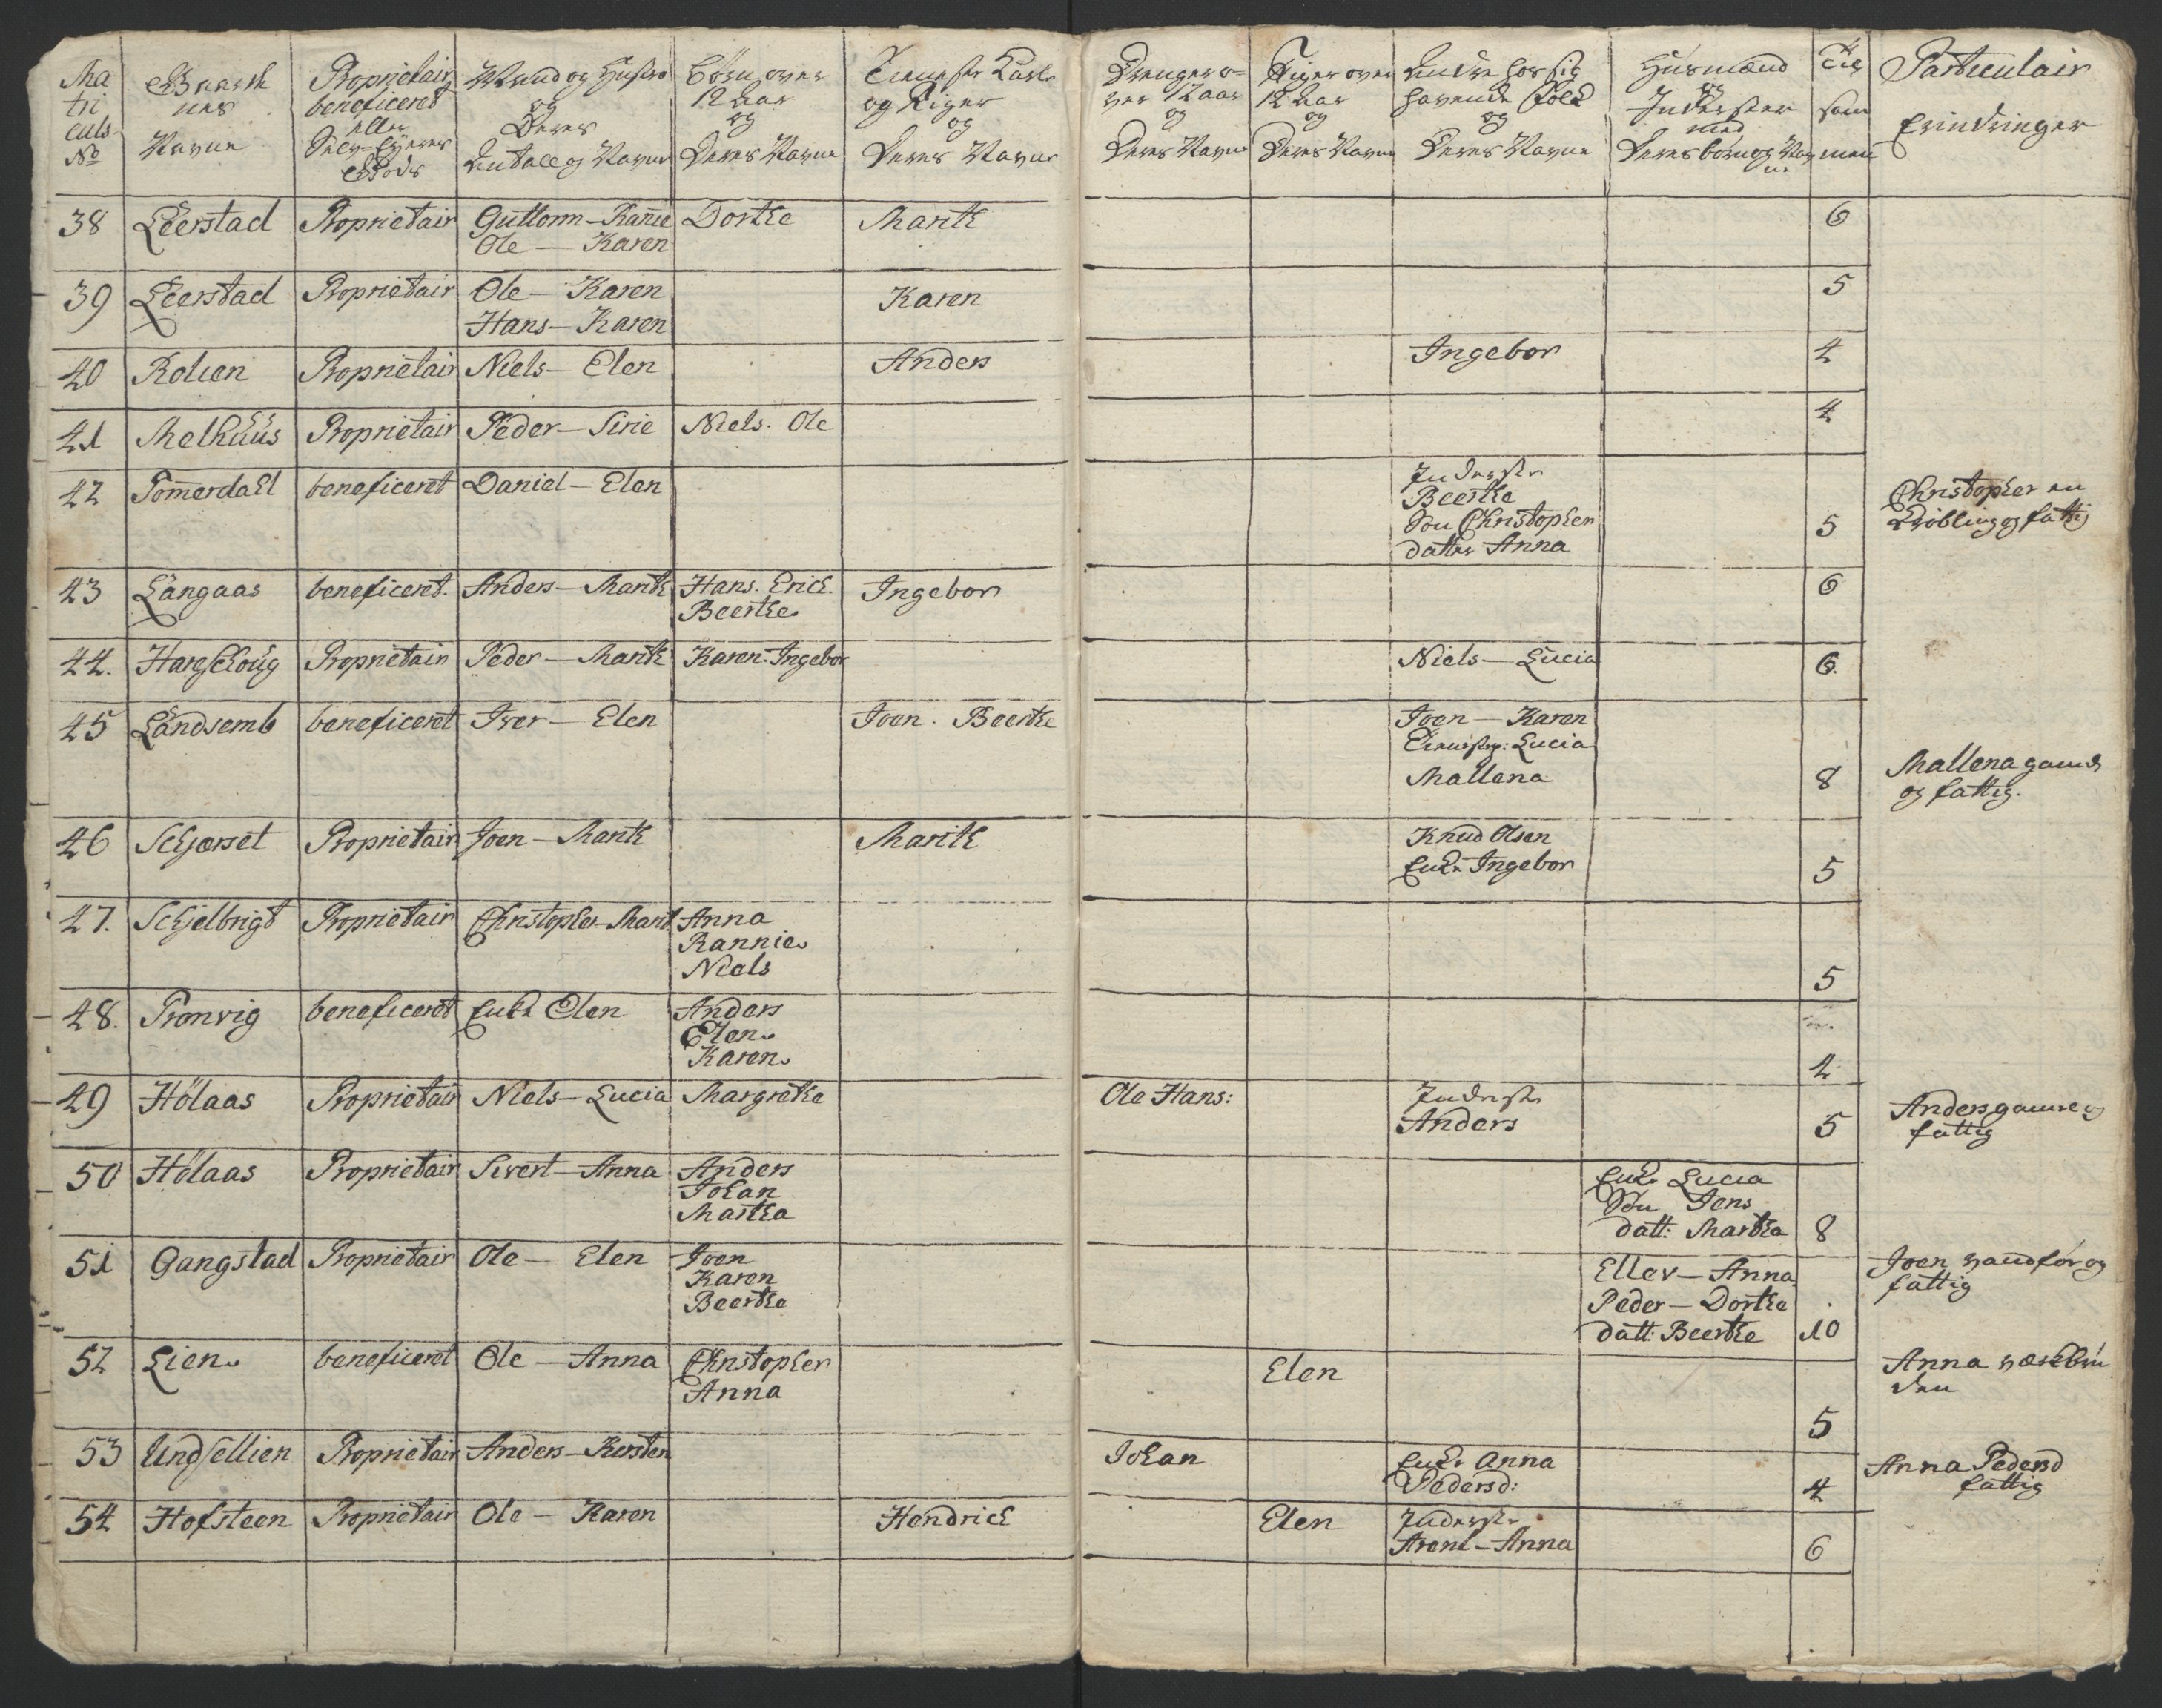 Ma
tri
culs
No
Gaarde
nes
Navne
Proprietair
beneficeret
eller
Selv-Eyeres
Gods
Mand og Hustroe
og
Deres
Antall og Navne
Børn over
12 aar
og
Deres Navne
Tieneste Karle
og Piger
og
Deres Navne
Drenge o-
ver 12 aar
og
Deres Navne
Piger over
12 aar
og
Deres Navne
Andre hos sig
havende Folk
og
Deres Navne
Huusmænd
og
Inderster
med
Deres børn og Nav
ne
Til
sam
men
Particulair
Erindringer
38 Leerstad Proprietair Guttorm - Rannie Dorthe Marith 6
Ole - Karen
39 Leerstad Proprietair Ole - Karen Karen 5
Hans - Karen
40 Rolien Proprietair Niels - Elen Anders Ingebor 4
41 Melhuus Proprietair Peder - Sirie Niels. Ole 4
42 Tømerdahl beneficeret Daniel - Elen Inderste
Beerthe
Søn Christopher
datter Anna 5
Christopher en
Krøbling og fattig
43 Langaas beneficeret. Anders - Marith Hans. Erich. Ingebor 6
Beerthe
44. Hargschoug Proprietair Peder - Marith Karen. Ingebor Niels - Lucia 6.
45 Landsemb beneficeret Iver - Elen Joen. Beerthe Joen - Karen
Lucia
Mallena 8
Mallena gaml
og fattig.
46 Schjærset Proprietair Joen - Marith Marith Knud Olsen
Enke Ingebor 5
47. Schjelbrigt Proprietair Christopher - Marit Anna
Rannie
Niels 5
48. Tronvig beneficeret Enke Elen Anders
Elen
Karen 4
49 Hølaas Proprietair Niels - Lucia Margrethe Ole Hans: Inderste
Anders 5
Anders gammel og
fattig
50 Hølaas Proprietair Sivert - Anna Anders
Johan
Martha
Enke Lucia
Søn Jens
datt: Martha 8
51 Gangstad Proprietair Ole - Elen Joen
Karen
Beerthe
Ellev - Anna
Peder - Dorthe
datt: Beerthe 10
Joen vandfør og
fattig
52 Lien beneficeret Ole - Anna Christopher
Anna
Elen 5
Anna værkbru
den
53 Undsellien Proprietair Anders - Kirsten Johan Enke Anna
Pedersd: 4
Anna Pedersd
fattig
54 Hofsteen Proprietair Ole - Karen Hendrich Elen Inderste
Arent - Anna 6